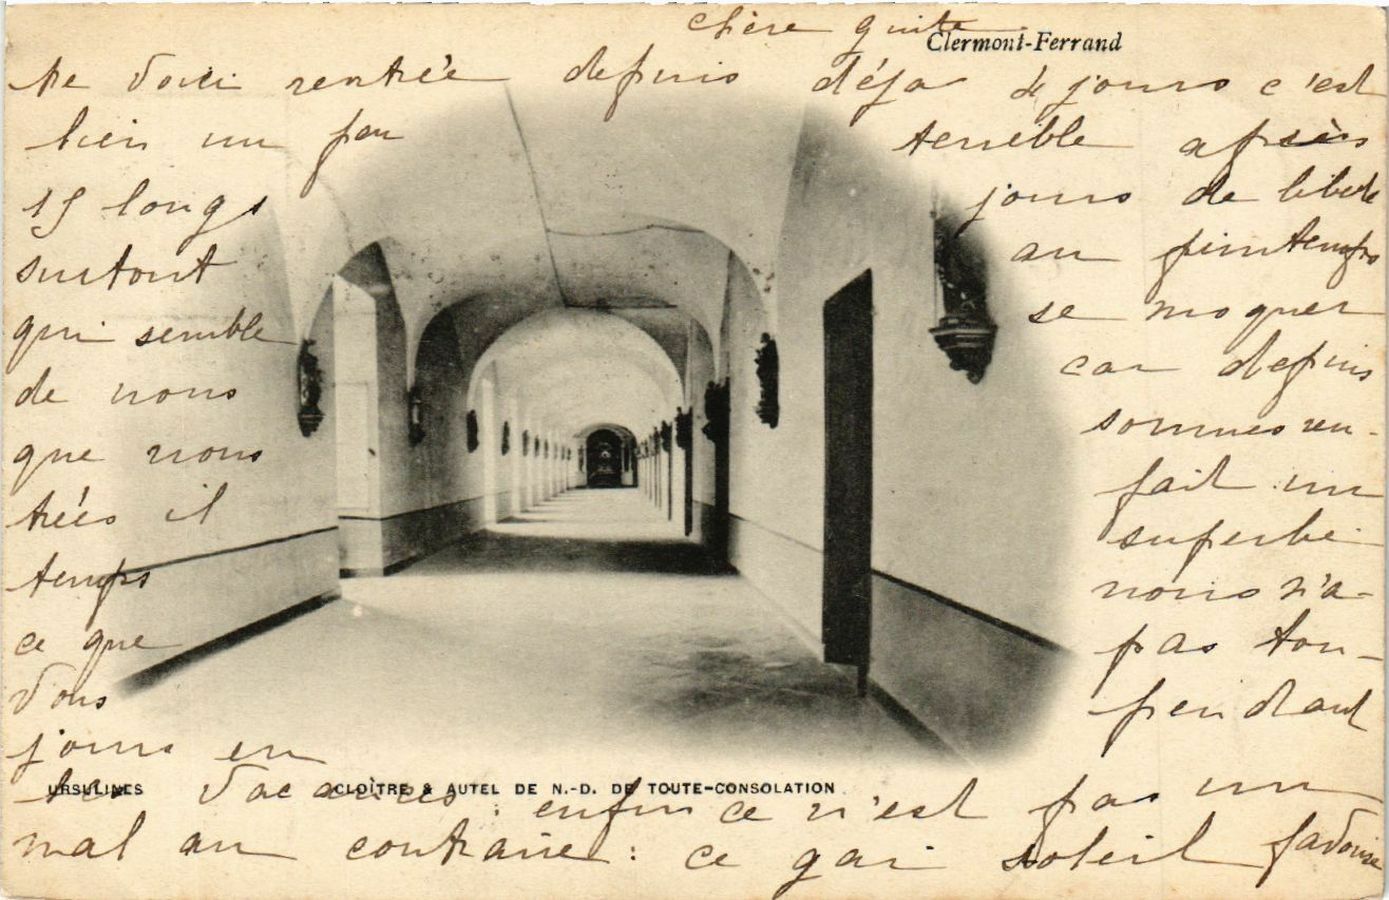 chère
Clermont-Ferrand
Me voici rentrée depuis déjà 4 jours c'est
bien un peu terrible après
15 longs jours de liberté
surtout au printemps
qui semble se moquer
de nous car depuis
que nous sommes ren-
trées il fait un
temps superbe
ce que nous n'a-
vons pas tou-
jours eu pendant
les vacances : enfin ce n'est pas un
mal au contraire : ce gai soleil
URSULINES CLOÎTRE & AUTEL DE N.-D. DE TOUTE-CONSOLATION